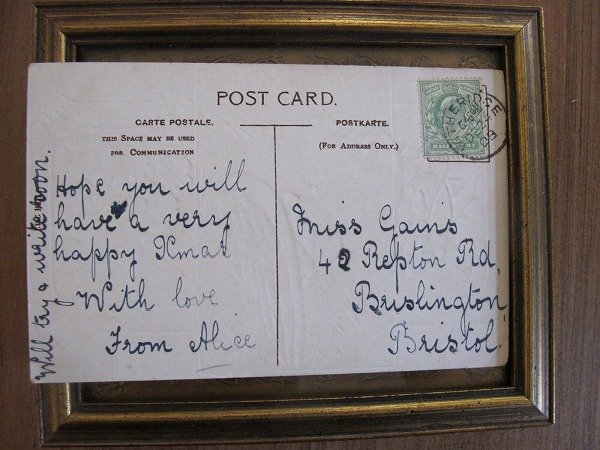 POST CARD.
CARTE POSTALE.
THIS SPACE MAY BE USED
FOR COMMUNICATION
POSTKARTE.
(FOR ADDRESS ONLY.)
HALFPENNY
Hope you will
have a very
happy Xmas
With love
From Alice
Will try & write soon.
Miss Gains
42 Repton Rd,
Brislington
Bristol.